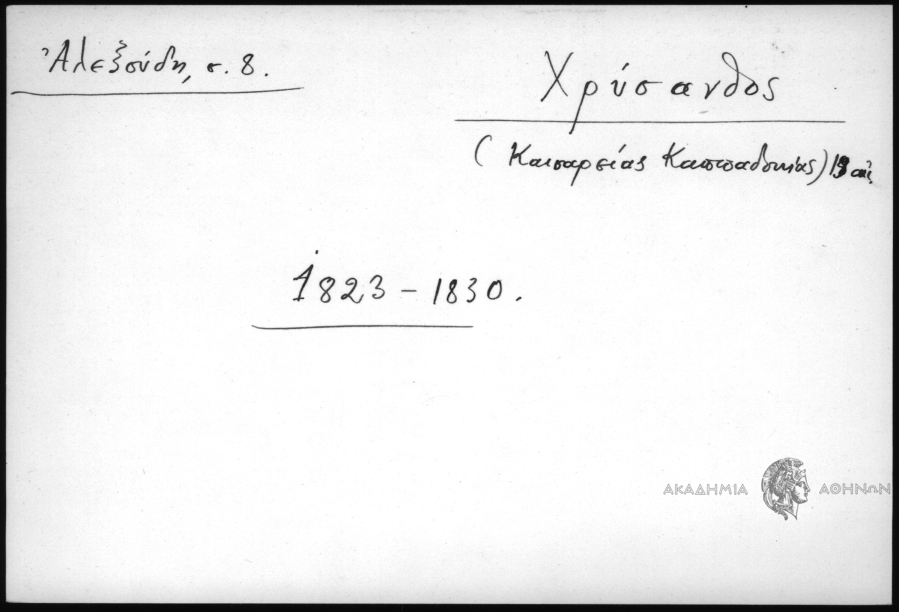 Ἀλεξούδη, σ. 8.
Χρύσανθος
(Καισαρείας Καππαδοκίας) 19 αἰ.
1823 – 1830.
ΑΚΑΔΗΜΙΑ ΑΘΗΝΩΝ